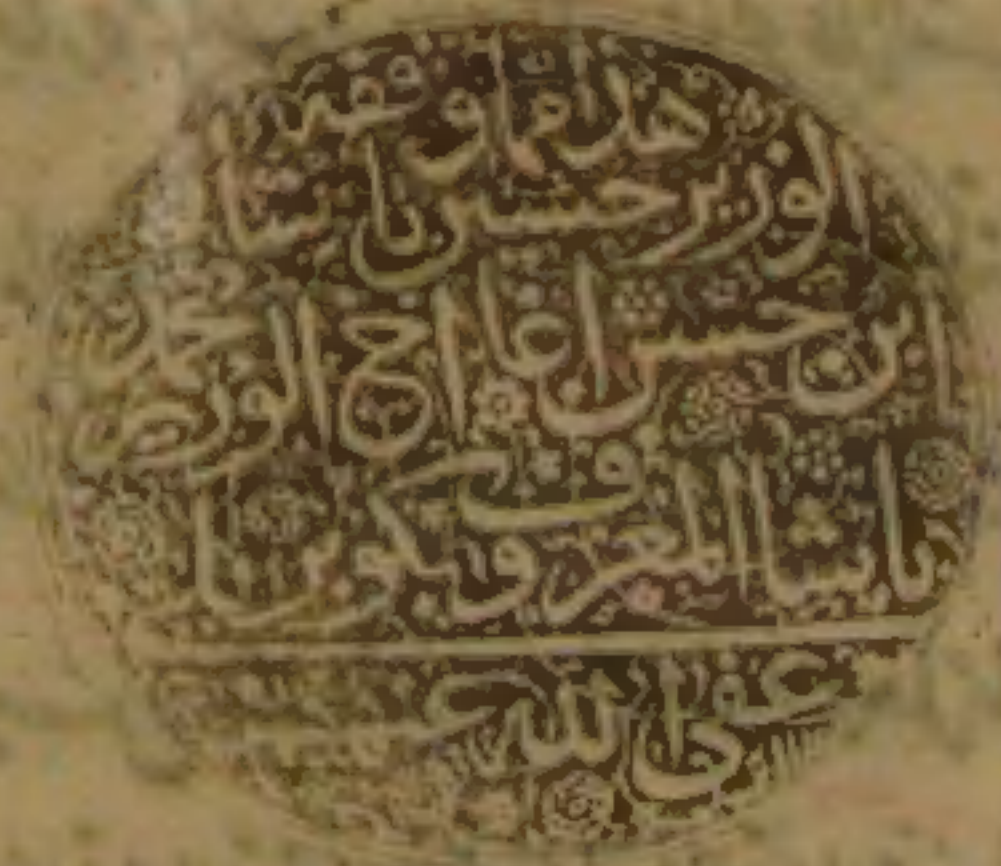 هذا مما وقفه
الوزير حسين باشا
ابن حسن اغا اخ الوزير محمد
باشا المعروف
عفا الله